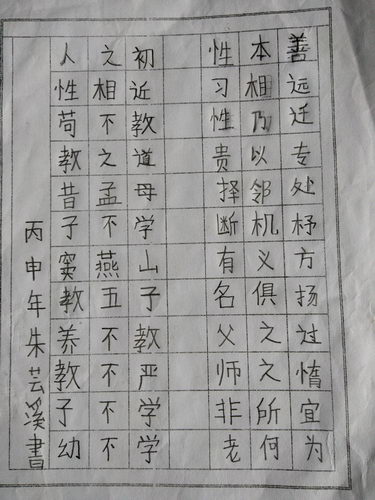 人之初 性本善
性相近 习相远
苟不教 性乃迁
教之道 贵以专
昔孟母 择邻处
子不学 断机杼
窦燕山 有义方
教五子 名俱扬
养不教 父之过
教不严 师之惰
子不学 非所宜
幼不学 老何为
丙申年朱芸溪書